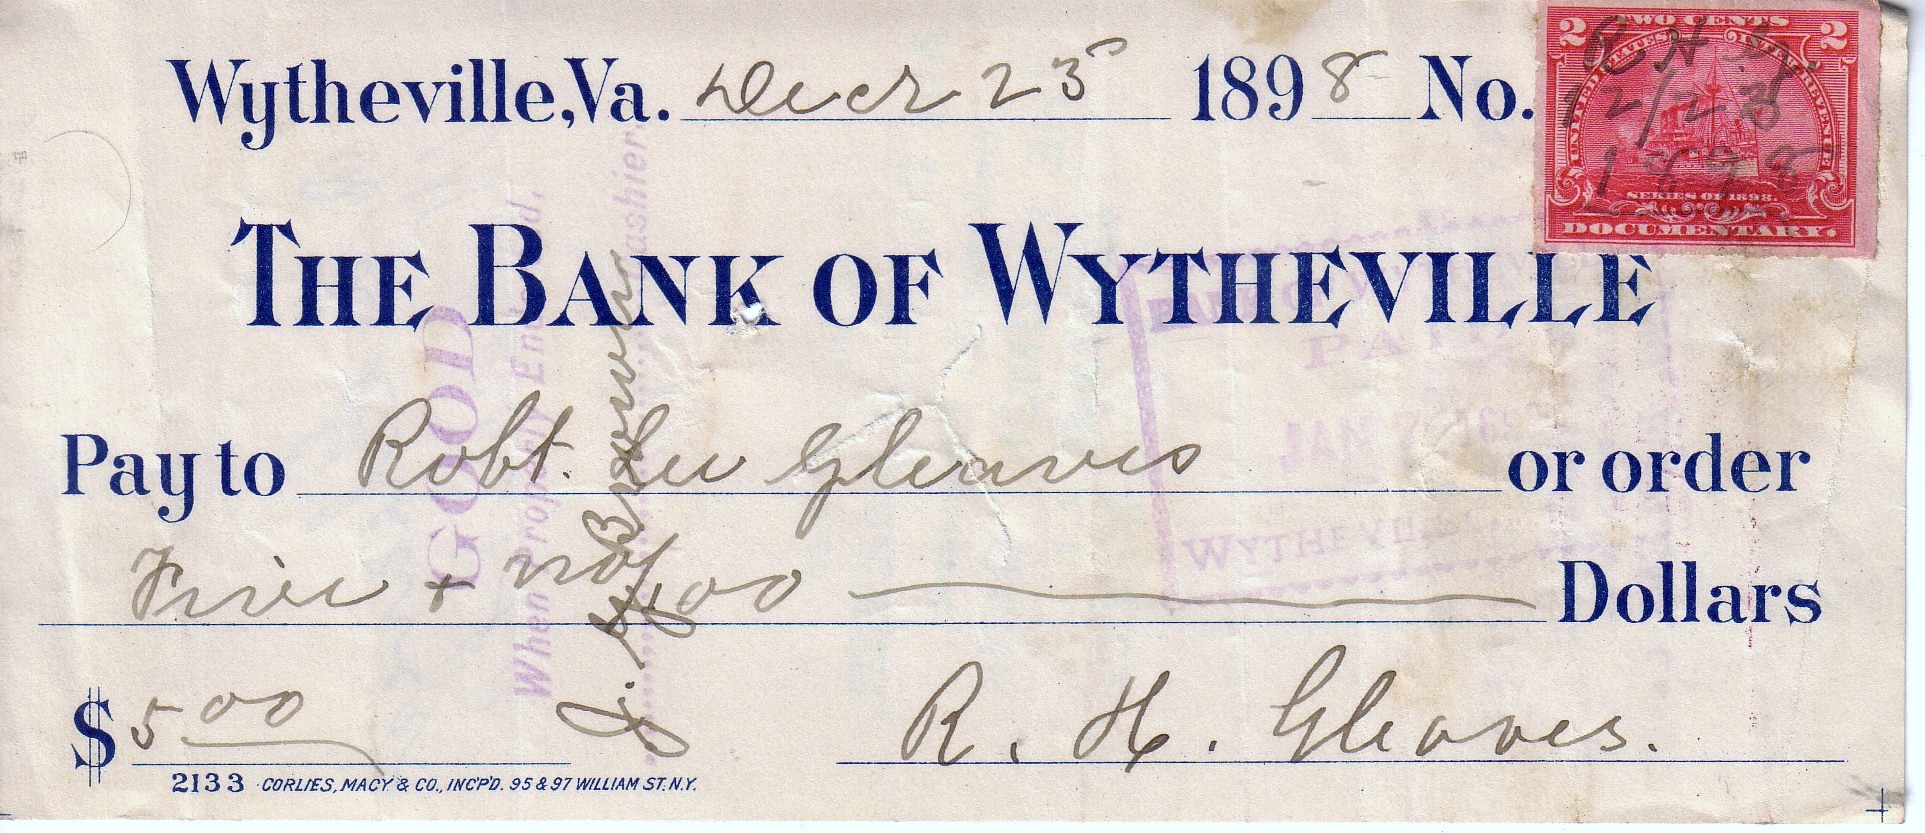 Wytheville, Va. Decr 23 1898 No.
2 TWO CENTS 2
UNITED STATES INTER. REVENUE
R H G.
12/23
1898
SERIES OF 1898.
DOCUMENTARY.
THE BANK OF WYTHEVILLE
Pay to Robt. Lee Gleaves or order
Five + no/100 Dollars
$ 5.00 R. H. Gleaves.
2133 CORLIES, MACY & CO., INC'P'D. 95 & 97 WILLIAM ST. N.Y.
GOOD
When Properly End
Brown
Cashier.
BANK OF WYTHEVILLE
PAID
WYTHEVILLE